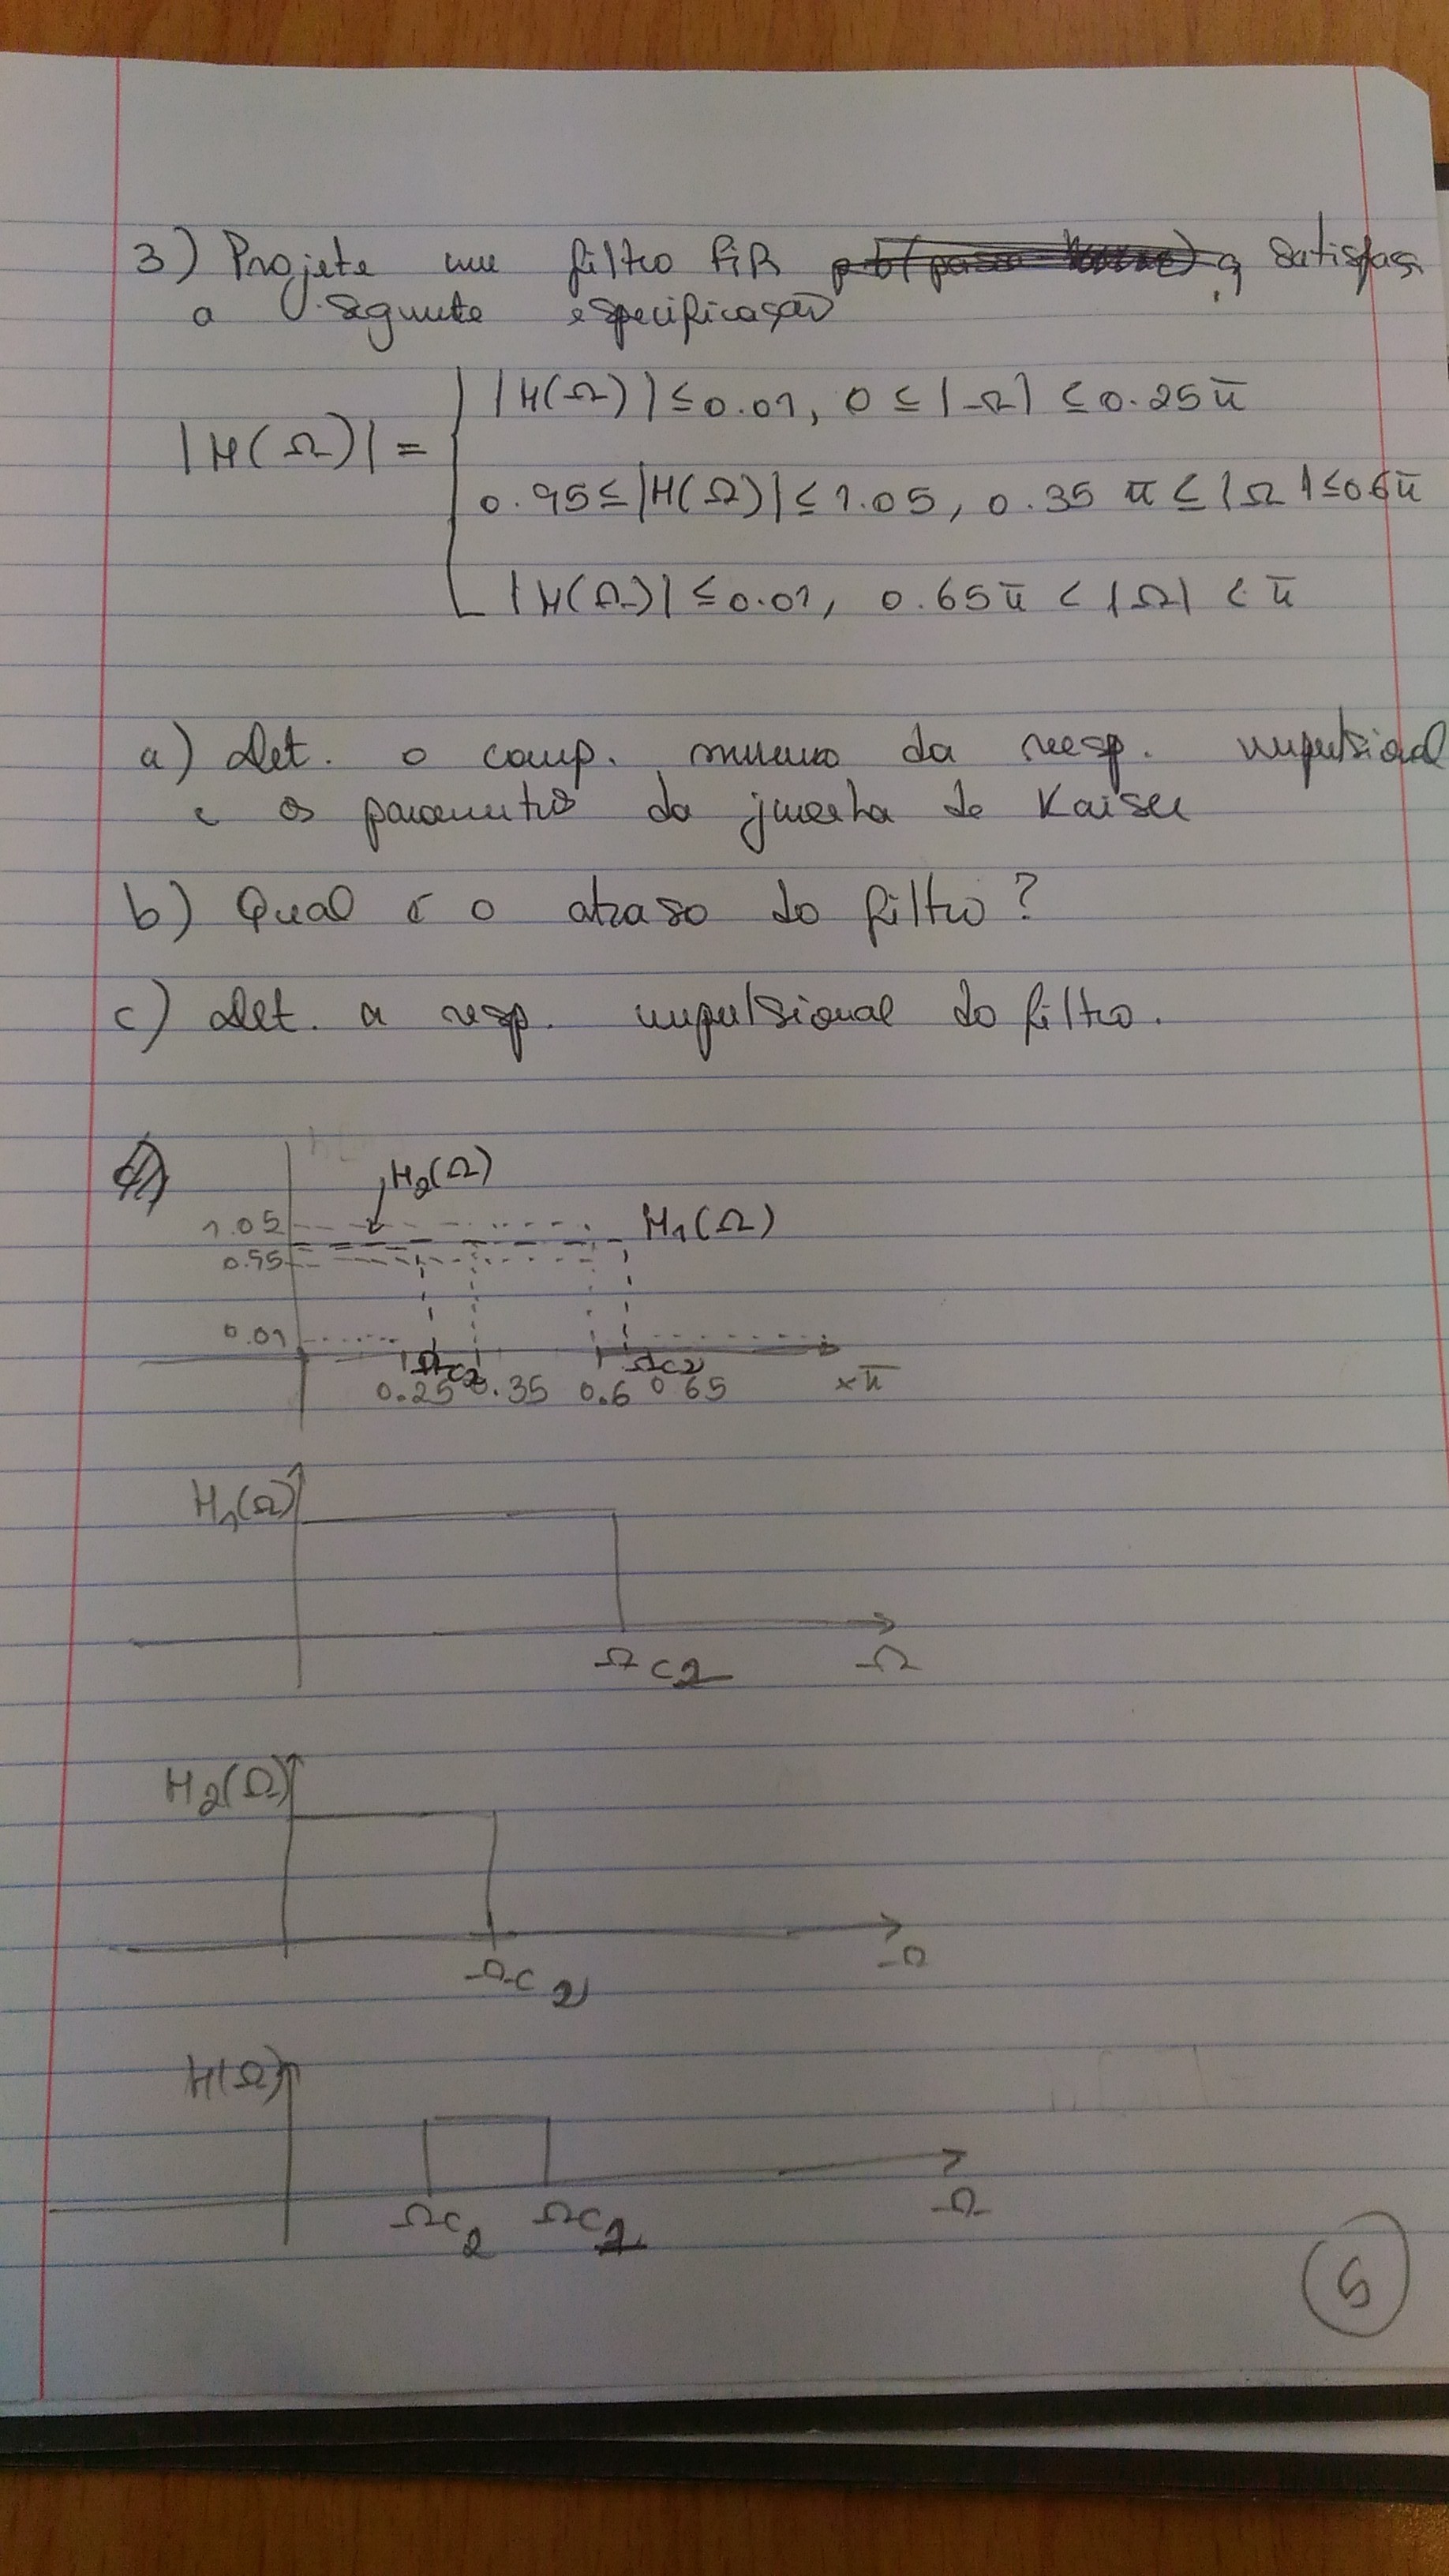 3) Projete um filtro FIR q satisfaça
a seguinte especificação
|H(Ω)| ≤ 0.01, 0 ≤ |Ω| ≤ 0.25π
|H(Ω)| =
0.95 ≤ |H(Ω)| ≤ 1.05, 0.35 π ≤ |Ω| ≤ 0.6π
|H(Ω)| ≤ 0.01, 0.65π < |Ω| < π
a) Det. o comp. mínimo da resp. impulsional
e os parametros da janela de Kaiser
b) Qual é o atraso do filtro?
c) Det. a resp. impulsional do filtro.
H2(Ω)
1.05
H1(Ω)
0.95
0.01
Ωc2 Ωc2
0.25 0.35 0.6 0.65 xπ
H1(Ω)
Ωc2 Ω
H2(Ω)
Ωc2 Ω
H(Ω)
Ωc2 Ωc2 Ω
5